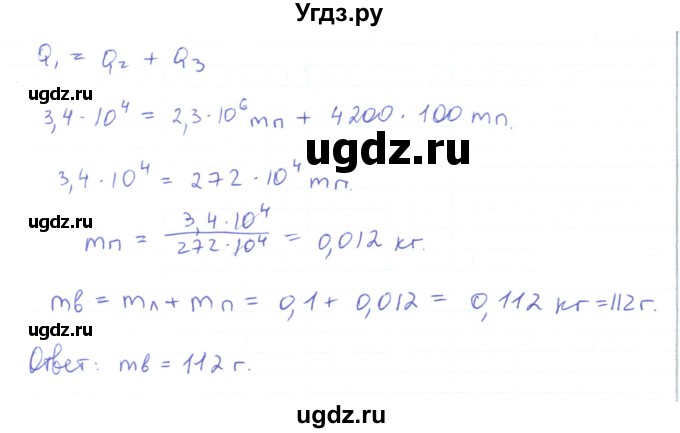 Угдз.ру
Q₁ = Q₂ + Q₃
ugdz.ru
3,4 · 10⁴ = 2,3 · 10⁶ mп + 4200 · 100 mп.
ugdz.ru
3,4 · 10⁴ = 272 · 10⁴ mп.
ugdz.ru
mп = 3,4 · 10⁴ / 272 · 10⁴ = 0,012 кг.
mв = mл + mп = 0,1 + 0,012 = 0,112 кг = 112 г.
ugdz.ru
Ответ: mв = 112 г.
ugdz.ru
ugdz.ru